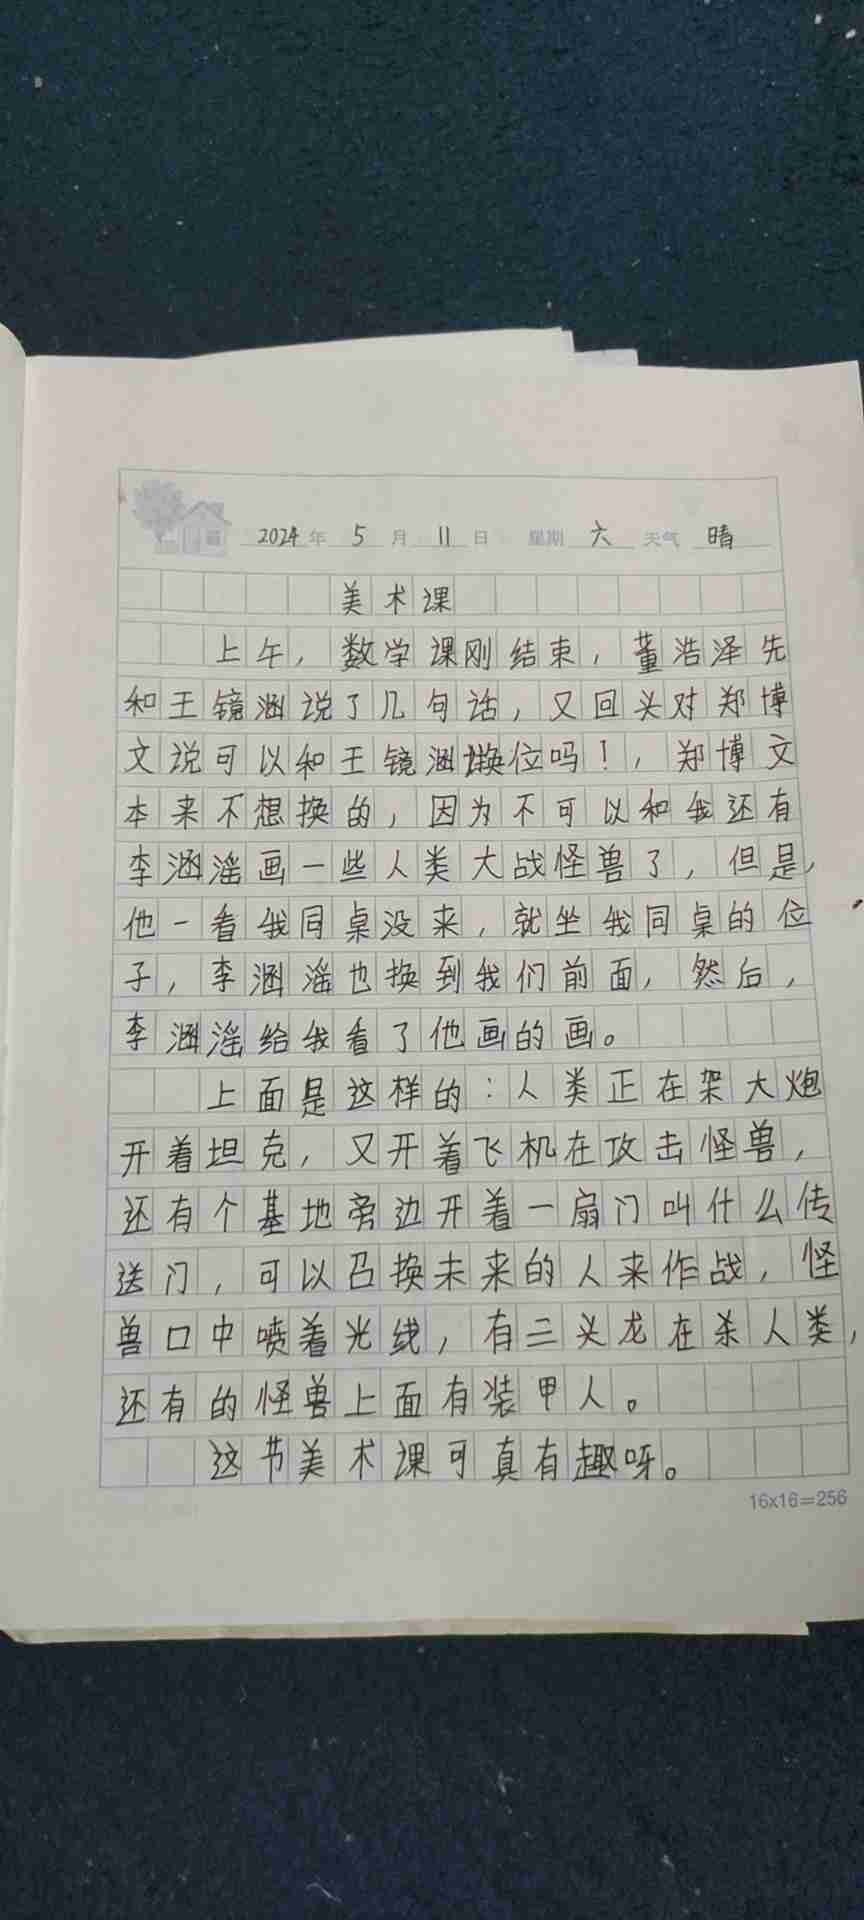 2024年 5月 11日 星期 六 天气 晴
美术课
上午，数学课刚结束，董浩泽先
和王镜涵说了几句话，又回头对郑博
文说可以和王镜涵换位吗！，郑博文
本来不想换的，因为不可以和我还有
李涵滛画一些人类大战怪兽了，但是，
他一看我同桌没来，就坐我同桌的位
子，李涵滛也换到我们前面，然后，
李涵滛给我看了他画的画。
上面是这样的：人类正在架大炮
开着坦克，又开着飞机在攻击怪兽，
还有个基地旁边开着一扇门叫什么传
送门，可以召换未来的人来作战，怪
兽口中喷着光线，有三头龙在杀人类，
还有的怪兽上面有装甲人。
这节美术课可真有趣呀。
16x16=256